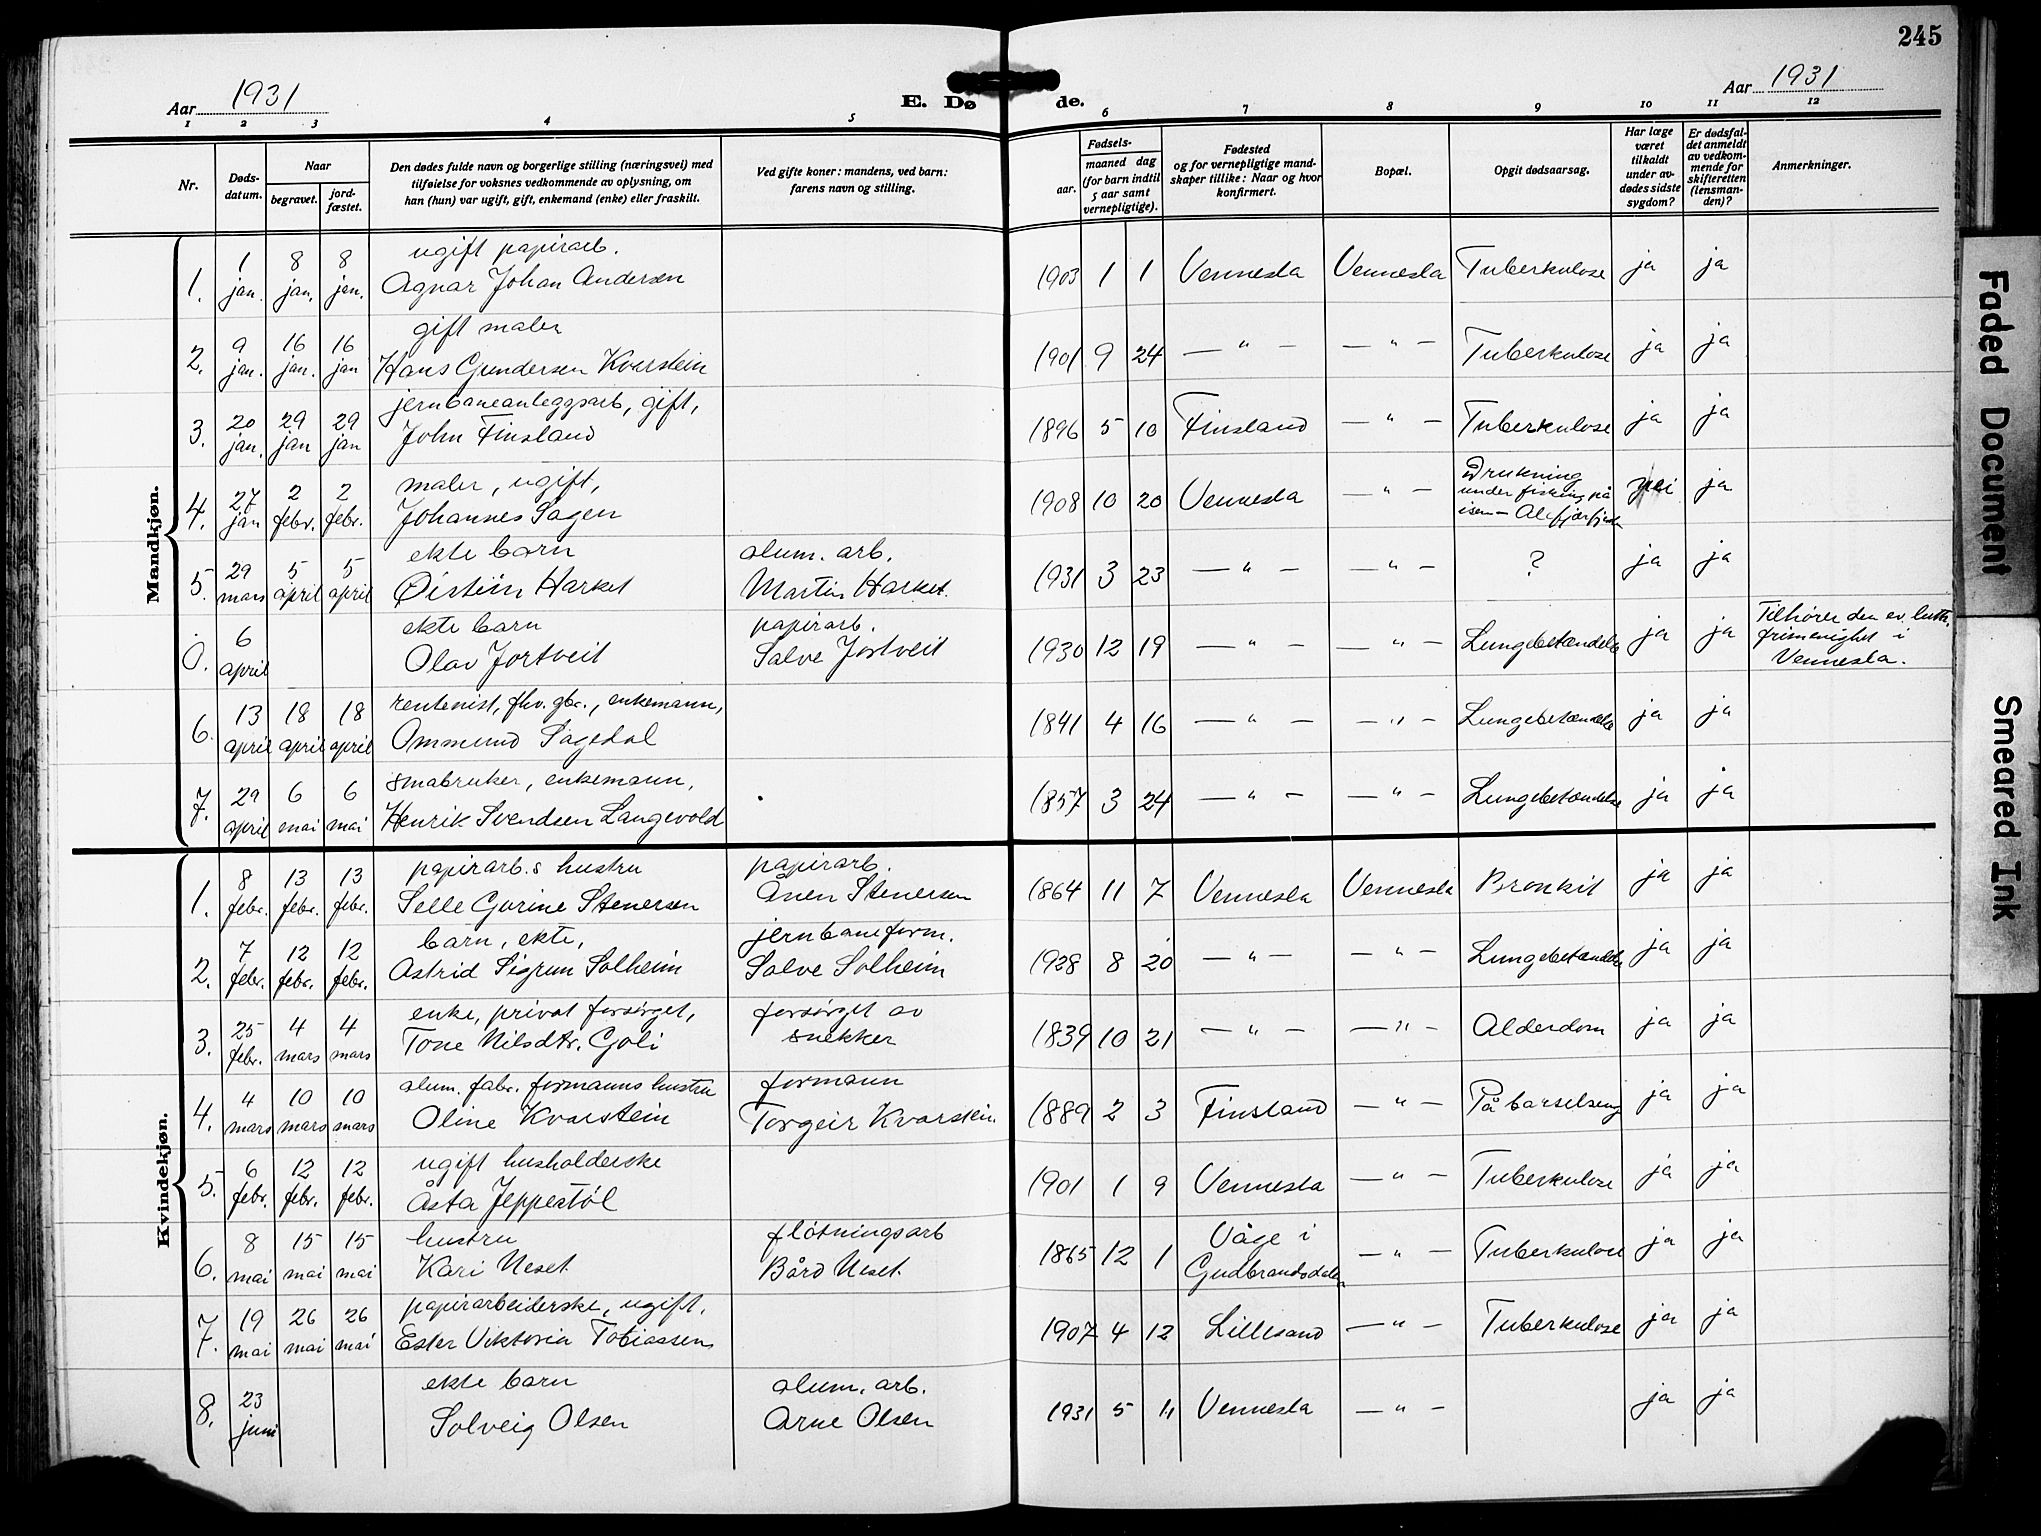 245
Aar 1931
E. Dø de.
Aar 1931
1 2 3 4 5 6 7 8 9 10 11 12
Nr.
Døds-
datum.
Naar
begravet.
jord-
fæstet.
Den dødes fulde navn og borgerlige stilling (næringsvei) med
tilføielse for voksnes vedkommende av oplysning, om
han (hun) var ugift, gift, enkemand (enke) eller fraskilt.
Ved gifte koner: mandens, ved barn:
farens navn og stilling.
Fødsels-
aar.
maaned dag
(for barn indtil
5 aar samt
vernepligtige).
Fødested
og for vernepligtige mand-
skaper tillike: Naar og hvor
konfirmert.
Bopæl.
Opgit dødsaarsag.
Har læge
været
tilkaldt
under av-
dødes sidste
sygdom?
Er dødsfal-
det anmeldt
av vedkom-
mende for
skifteretten
(lensman-
den)?
Anmerkninger.
Mandkjøn.
ugift papirarb.
1. 1 jan. 8 jan. 8 jan. Agnar Johan Andersen 1903 1 1 Vennesla Vennesla Tuberkulose ja ja
gift maler
2. 9 jan. 16 jan. 16 jan Hans Gundersen Kvarstein 1901 9 24 — " — — " — Tuberkulose ja ja
jernbaneanleggsarb, gift,
3. 20 jan. 29 jan 29 jan John Finsland 1896 5 10 Finsland — " — Tuberkulose ja ja
maler, ugift,
4. 27 jan 2 febr. 2 febr. Johannes Sagen 1908 10 20 Vennesla — " — Drukning
under fisking på
isen – nei ja
ekte barn alum. arb.
5. 29 mars 5 april 5 april Øistein Harket Martin Harket. 1931 3 23 — " — — " — ? ja ja
ekte barn papirarb.
0. 6 april Olav Jortveit Salve Jortveit 1930 12 19 — " — — " — Lungebetændelse ja ja Tilhører den ev. luth.
frimenighet i
Vennesla.
rentenist, fhv. gbr., enkemann,
6. 13 april 18 april 18 april Ommund Sagedal 1841 4 16 — " — — " — Lungebetændelse ja ja
småbruker, enkemann,
7. 29 april 6 mai 6 mai Henrik Svendsen Langevold 1857 3 24 — " — — " — Lungebetændelse ja ja
Kvindekjøn.
papirarb.s hustru papirarb.
1. 8 febr. 13 febr. 13 febr. Selle Gurine Stenersen Ånen Stenersen 1864 11 7 Vennesla Vennesla Bronkit ja ja
barn, ekte, jernbaneform.
2. 7 febr. 12 febr. 12 febr. Astrid Sigrun Solheim Salve Solheim 1928 8 20 — " — — " — Lungebetændelse ja ja
enke, privat forsørget, forsørget av
3. 25 febr. 4 mars 4 mars Tone Nilsdtr. Goli snekker 1839 10 21 — " — — " — Alderdom ja ja
alum. fabr. formanns hustru formann
4. 4 mars 10 mars 10 mars Oline Kvarstein Torgeir Kvarstein. 1889 2 3 Finsland — " — På barselseng ja ja
ugift husholderske
5. 6 febr. 12 febr. 12 febr. Åsta Jeppestøl 1901 1 9 Vennesla — " — Tuberkulose ja ja
hustru fløtningsarb
6. 8 mai 15 mai 15 mai Kari Neset Bård Neset. 1865 12 1 Våge i
Gudbrandsdalen — " — Tuberkulose ja ja
papirarbeiderske, ugift.
7. 19 mai 26 mai 26 mai Ester Viktoria Tobiassen 1907 4 12 Lillesand — " — Tuberkulose ja ja
ekte barn alum. arb.
8. 23 juni Solveig Olsen Arne Olsen 1931 5 11 Vennesla — " — ja ja
Faded Document
Smeared Ink